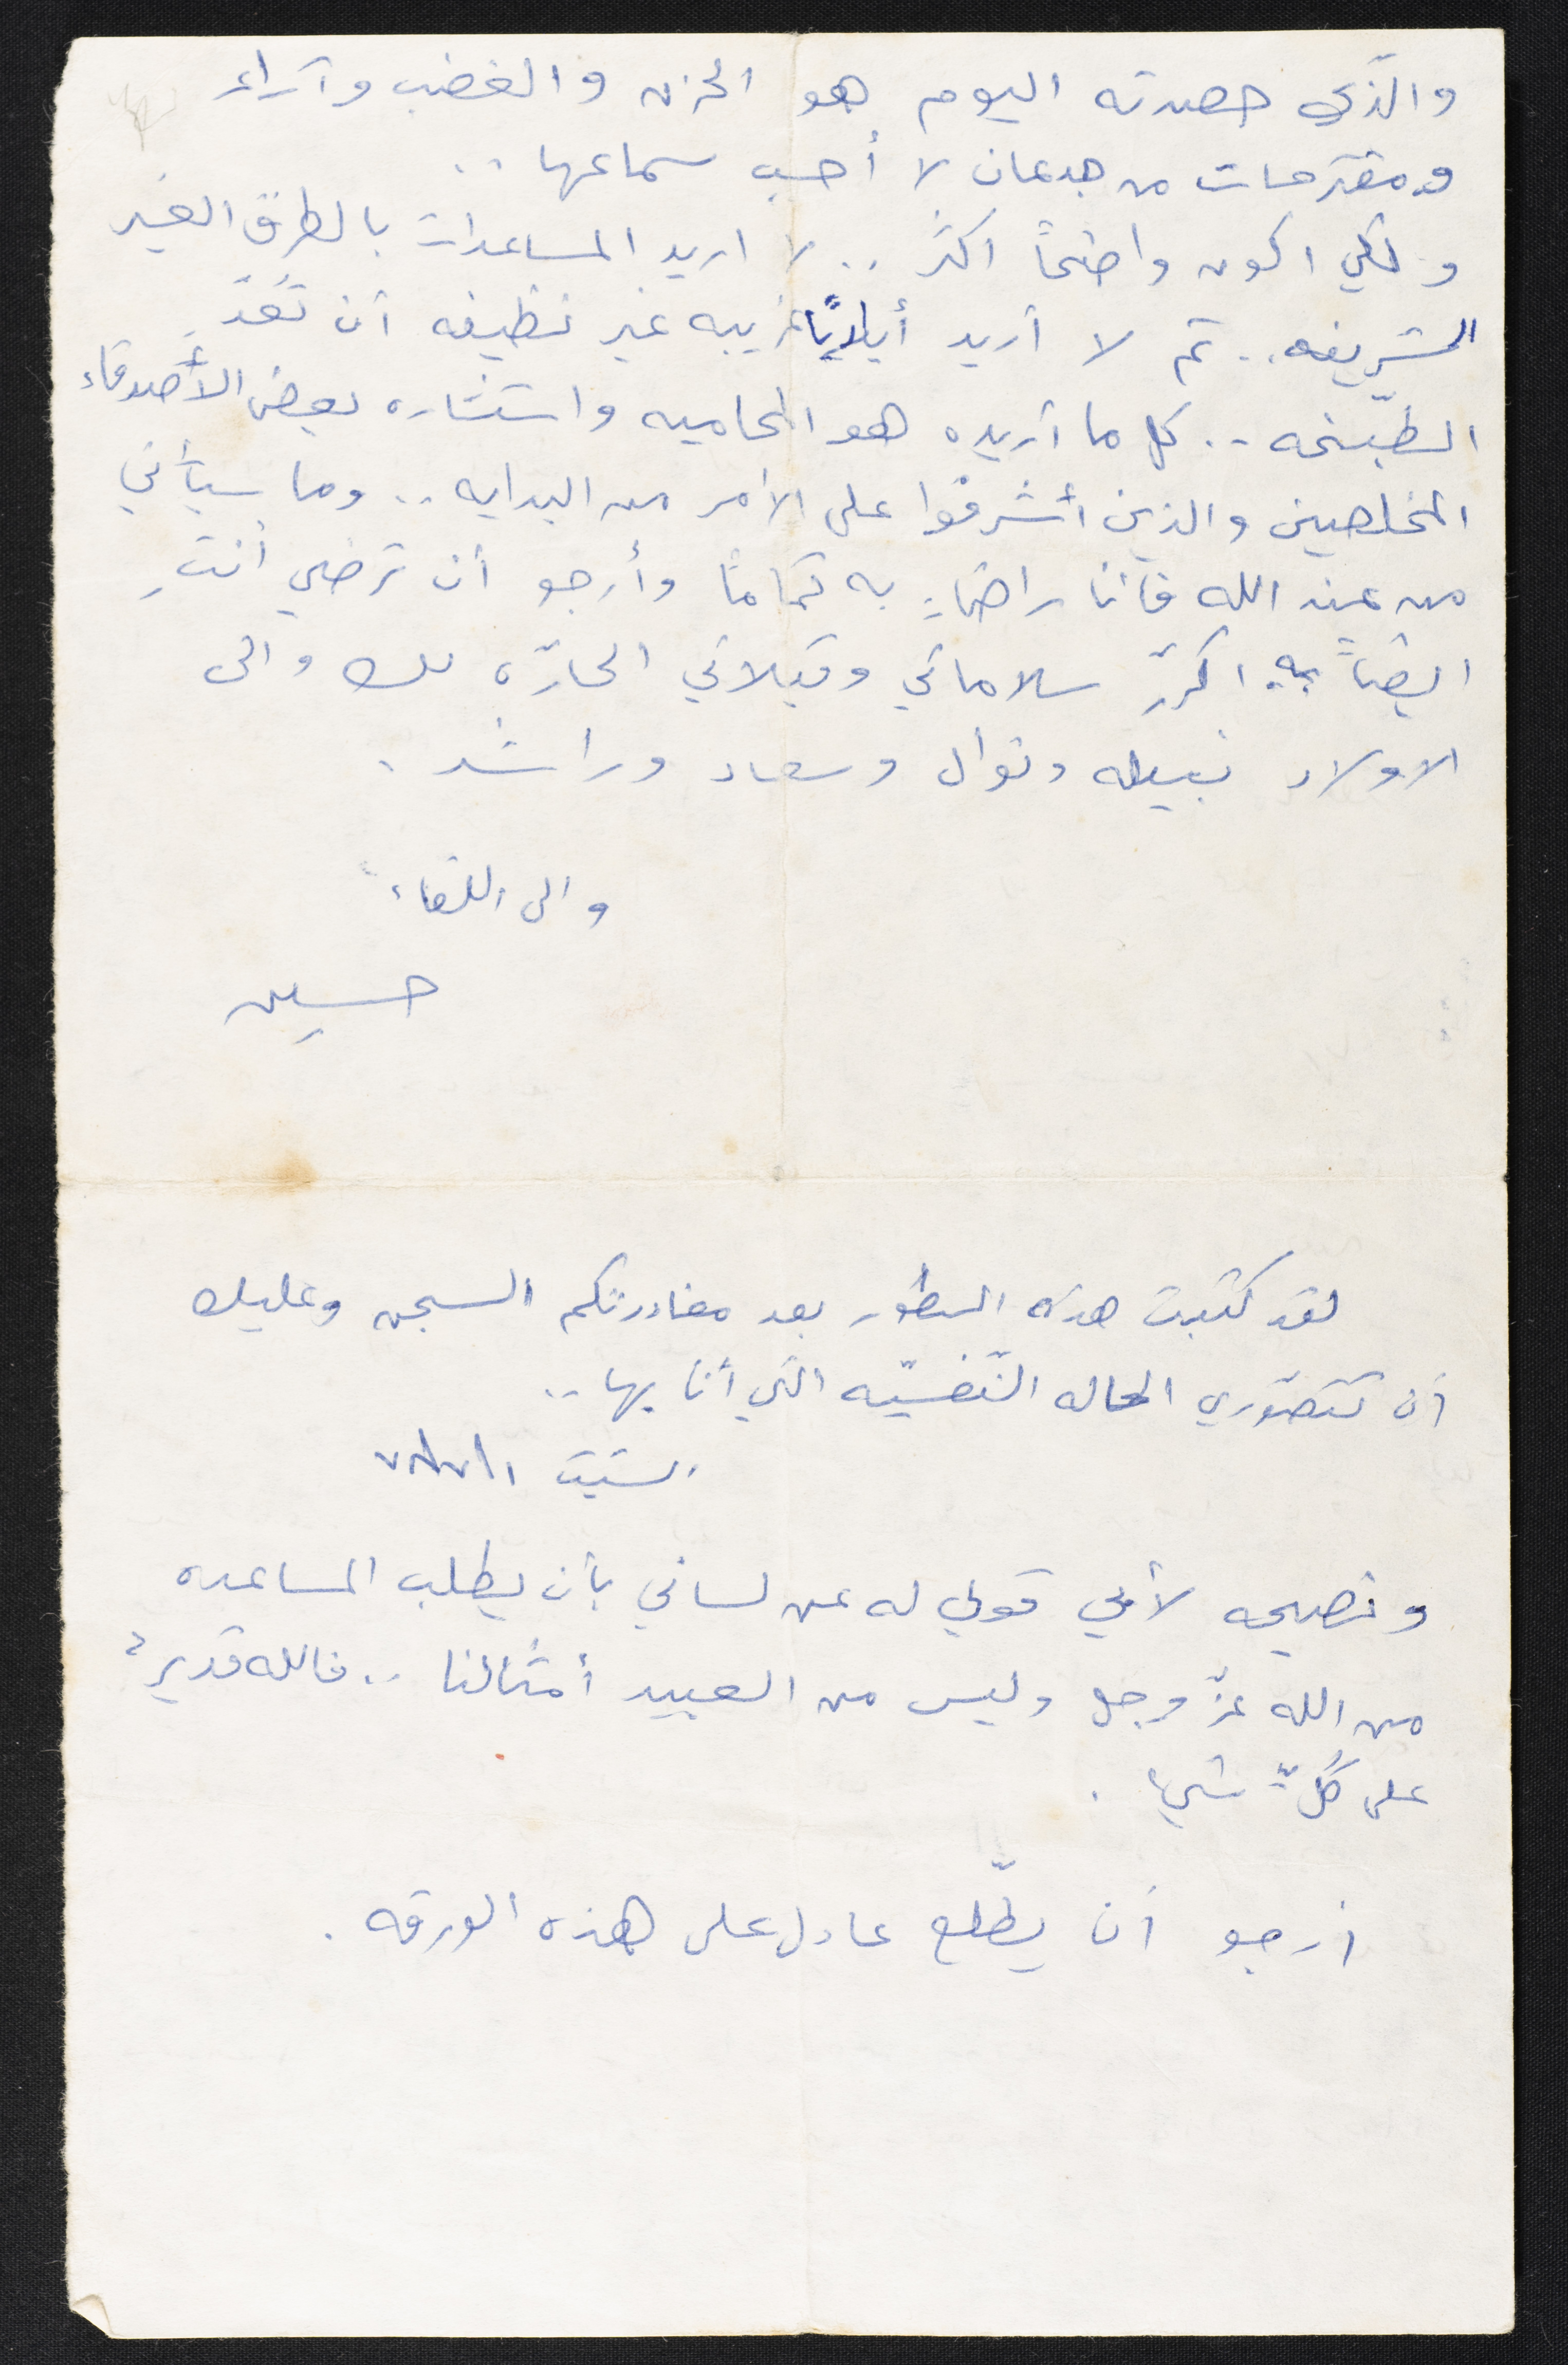 والذي حصدته اليوم هو الحزن والغضب وآراء
ومقترحات من جدعان لا أحب سماعها ..
ولكي اكون واضحاً اكثر .. لا اريد المساعدات بالطرق الغير
الشريفه .. ثم لا أريد أيادٍ غريبه غير نظيفه أن تعدّ
الطبخه .. كل ما أريده هو المحاميه واستشاره بعض الأصدقاء
المخلصين والذين أشرفوا على الأمر من البدايه .. وما سيأتي
من عند الله فأنا راضٍ به تماماً وأرجو أن ترضي أنتِ
ايضاً به. اكرّر سلاماتي وقبلاتي الحارّه لك والى
الاولاد نبيله ونوال وسعاد وراشد .
والى اللقاء
حسين
لقد كتبت هذه السطور بعد مغادرتكم السجن وعليك
أن تتصوّري الحاله النّفسيّه التي أنا بها ..
السبت
ونصيحه لأبي قولي له عن لساني بأن يطلب المساعده
من الله عزّ وجل وليس من العبيد أمثالنا .. فالله قديرٌ
على كُلّ شيء .
أرجو أن يطّلع عادل على هذه الورقه .